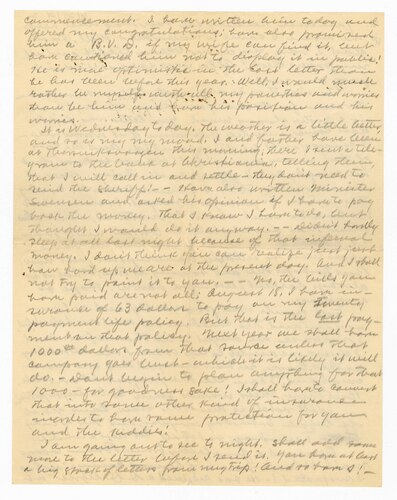 commencement. I have written him today and
offered my congratulations; have also promised
him a B.V.D. if my wife can find it, but
have cautioned him not to display it in public!
He is more optimistic in the last letter than
he has been before this year. Well, I would much
rather be myself with all my poverties and worries
than be him and have his position and his
worries.
It is Wednesday to-day. The weather is a little better,
and so is my mood. I and
at the this morning, there I sent a tele-
gram to the bank at Christiania, telling them,
that I will call in and settle - they don't need to
send the sheriff! - Have also written Minister
and asked his opinion if I have to pay
back the money. That I know I have to do, but
thought I would do it anyway. -- Didn't hardly
sleep at all last night because of that infernal
money. I don't think you can realize just
how hard up we are at the present day. And I shall
not try to paint it to you. -- Yes, the bills you
have paid are not all; August 15, I have in-
surance of 63 dollars to pay on my twenty
payment life policy. But that is the last pay-
ment on that policy. Next year we shall have
1000 dollars from that source unless that
company goes bust - which it is likely it will
do. - Don't begin to plan anything for that
1000 - for goodness sake! I shall have to convert
that into some other kind of insurance
in order to have some protection for you
and the kiddies!
I am going out to see to night. Shall add some
more to the letter before I send it. You have at last
a big stack of letters from my trip! And so have I! -